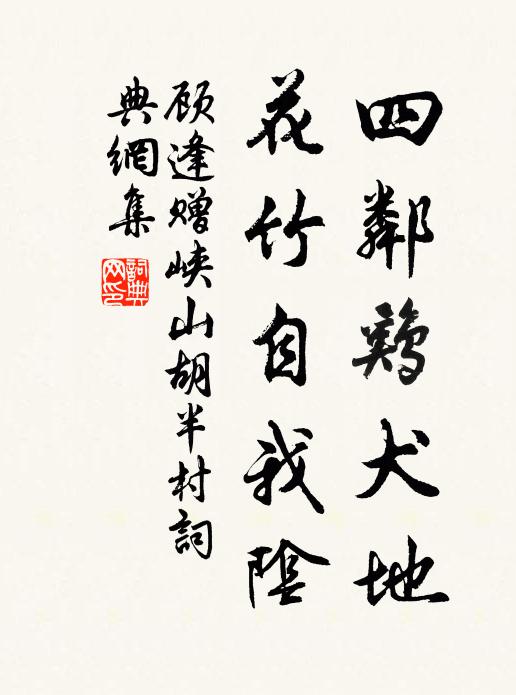 四鄰鷄犬地
花竹自我陰
顾逢贈峡山胡半村詞
典網集
詞典
网印